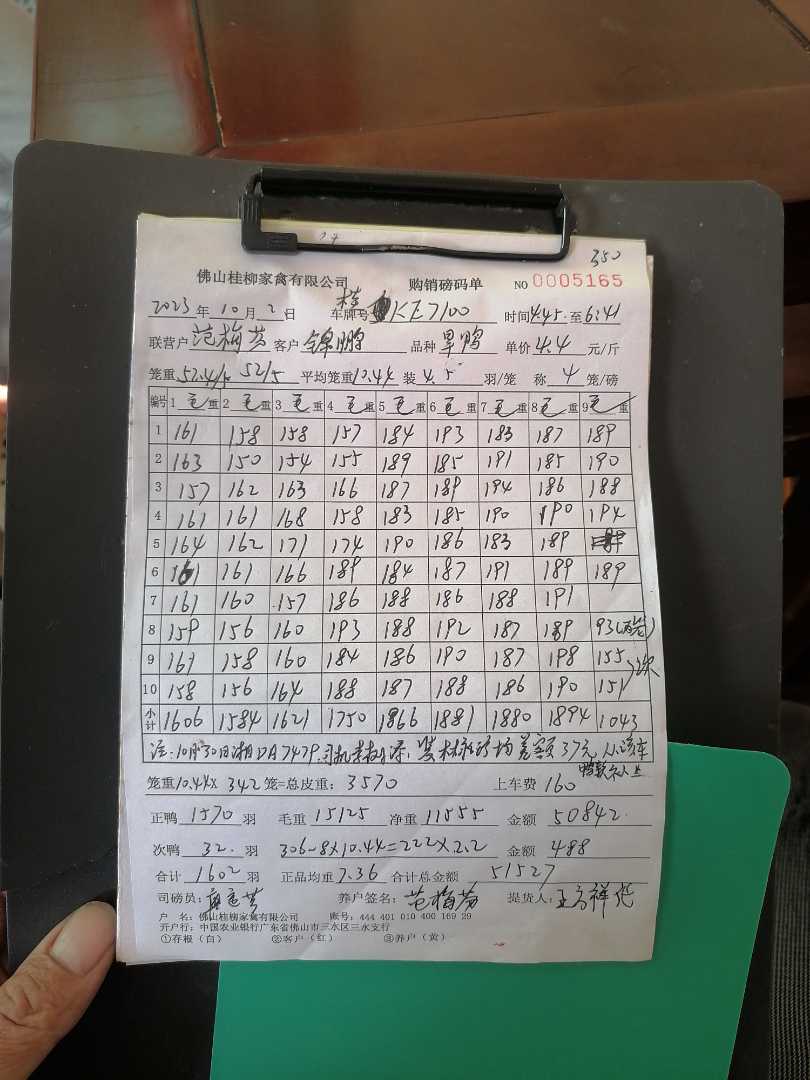 350
佛山桂柳家禽有限公司 购销磅码单 NO 0005165
2023 年 10 月 2 日 车牌号 桂 KE7100 时间 4:45 至 6:41
联营户 范梅芳 客户 锦鹏 品种 旱鸭 单价 4.4 元/斤
笼重 52.4/5 52/5 平均笼重 10.44 装 4.5 羽/笼 称 4 笼/磅
编号 1 毛重 2 毛重 3 毛重 4 毛重 5 毛重 6 毛重 7 毛重 8 毛重 9 毛重
1 161 158 158 157 184 193 183 187 189
2 163 150 154 155 189 185 191 185 190
3 157 162 163 166 187 189 194 186 188
4 161 161 168 158 183 185 190 190 194
5 164 162 171 174 190 186 183 189
6 161 161 166 189 184 187 191 189 189
7 161 160 157 186 188 186 188 191
8 159 156 160 193 188 192 187 189 93
9 161 158 160 184 186 190 187 198 155
10 158 156 164 188 187 188 186 190 151 次
小计 1606 1584 1621 1750 1866 1881 1880 1894 1043
注:10月30日湘DA7479 差额37元 从该车
笼重 10.44 X 342 笼=总皮重: 3570 上车费 160
正鸭 1570 羽 毛重 15125 净重 11555 金额 50842
次鸭 32. 羽 306-8×10.44=222×2.2 金额 488
合计 1602 羽 正品均重 7.36 合计总金额 51527
司磅员: 养户签名: 范梅芳 提货人:
户 名: 佛山桂柳家禽有限公司 账号: 444 401 010 400 169 29
开户行: 中国农业银行广东省佛山市三水区三水支行
①存根(白) ②客户(红) ③养户(黄)